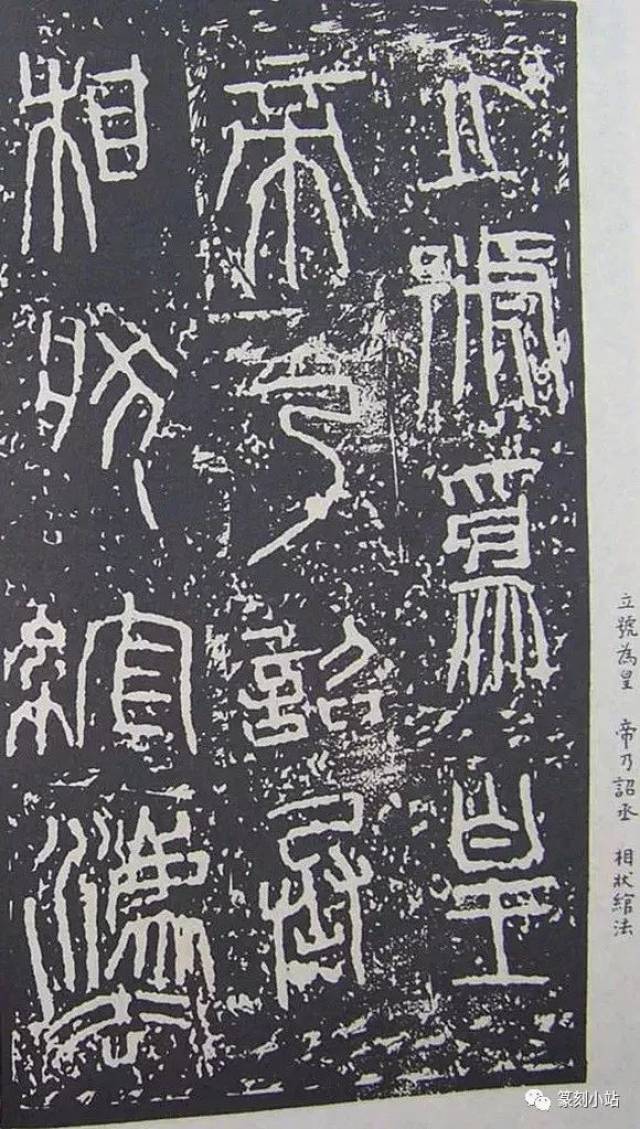 立號為皇
帝乃詔丞
相狀綰法
立號為皇 帝乃詔丞 相狀綰法
篆刻小站